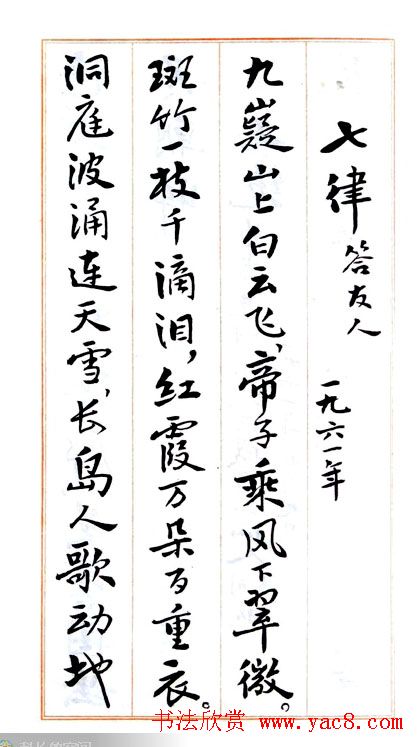 七律 答友人 一九六一年
九嶷山上白云飞，帝子乘风下翠微。
斑竹一枝千滴泪，红霞万朵百重衣。
洞庭波涌连天雪，长岛人歌动地
书法欣赏 www.yac8.com